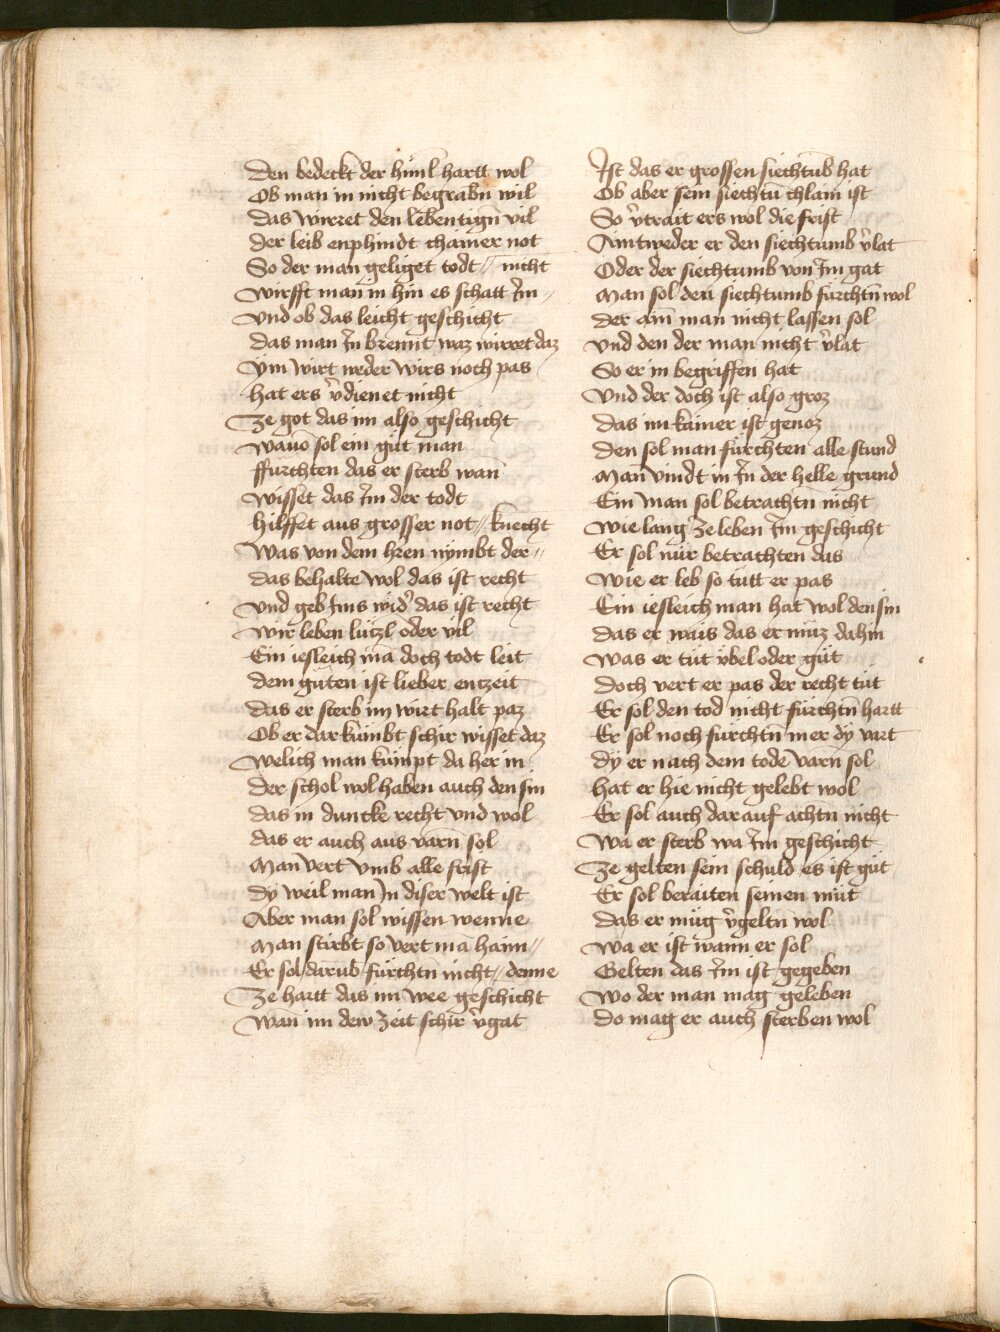 Den bedeckt der himl hartt wol
Ob man in nicht begrabn wil
Das wirret den lebentign vil
Der leib enphindt chainer not
So der man geliget todt // nicht
Wirfft man in hin es schatt Im //
Und ob das leicht geschicht
Das man In brennt waz wirret daz
Im wirt weder wirs noch pas
Hat ers v̓dienet nicht
Ze got das im also geschicht
Wavo sol ein gut man
ffurchten das er sterb wan
Wisset das Im der todt
Hilffet aus grosser not // knecht
Was von dem hren nymbt der //
Das behalte wol das ist recht
Und geb Ims wid̓ das ist recht
Wir leben lützl oder vil
Ein iesleich mā doch todt leit
Dem guten ist lieber enczeit
Das er sterb im wirt halt paz
Ob er dar kumbt schir wisset daz
Welich man kumpt da her in
Der schol wol haben auch den sin
Das in duncke recht und wol
Das er auch aus varn sol
Man vert umb alle frist
Dy weil man In diser welt ist
Aber man sol wissen wenne
Man stirbt so vert mā haim //
Er sol darub furchtn nicht // denne
Ze hartt das im wee geschicht
Wan im dew zeit schir v̓gat
Ist das er grossen siechtub hat
Ob aber sein siechtu chlain ist
So v̓trait ers wol die frist
Aintweder er den siechtumb v̓lat
Oder der siechtumb von Im gat
Man sol den siechtumb furchtn wol
Der ain man nicht lassen sol
Und den der man nicht v̓lat
So er in begriffen hat
Und der doch ist also groz
Das im kainer ist genoz
Den sol man fürchten alle stund
Man vindt in In der helle grund
Ein man sol betrachtn nicht
Wie lang ze leben Im geschicht
Er sol nür betrachten das
Wie er leb so tutt er pas
Ein iesleich man hat wol den sin
Das er wais das er muz dahin
Was er tüt v̈bel oder güt
Doch vert er pas der recht tüt
Er sol den tod nicht fürchtn hartt
Er sol noch furchtn mer dy vart
Dy er nach dem tode varn sol
Hat er hie nicht gelebt wol
Er sol auch darauf achtn nicht
Wa er sterb wa Im geschicht
Ze gelten sein schuld es ist güt
Er sol beraiten seinen müt
Das er müg v̓geltn wol
Wa er ist wann er sol
Gelten das Im ist gegeben
Wo der man mag geleben
Do mag er auch sterben wol